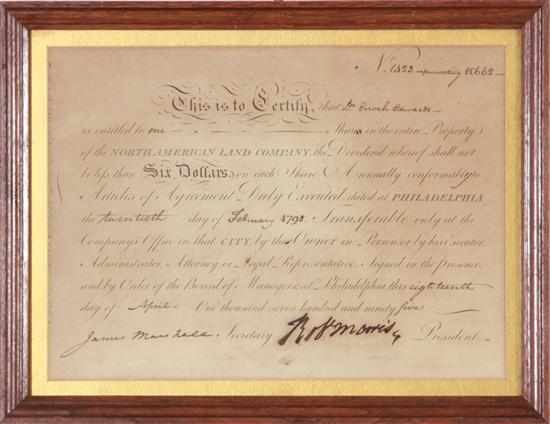 No. 1323
This is to Certify, that Dr. Enoch Edwards
is entitled to one Share in the entire Property
of the NORTH AMERICAN LAND COMPANY, the Dividend whereof shall not
be less than Six Dollars on each Share Annually conformably to
Articles of Agreement Duly Executed, dated at PHILADELPHIA
the twentieth day of February 1795 Transferable only at the
Company's Office in that CITY, by the Owner in Person or by his Executor
Administrator Attorney or Legal Representative Signed in the presence
and by Order of the Board of Managers at Philadelphia this eighteenth
day of April One thousand seven hundred and ninety five
James Marshall Secretary Robt Morris President